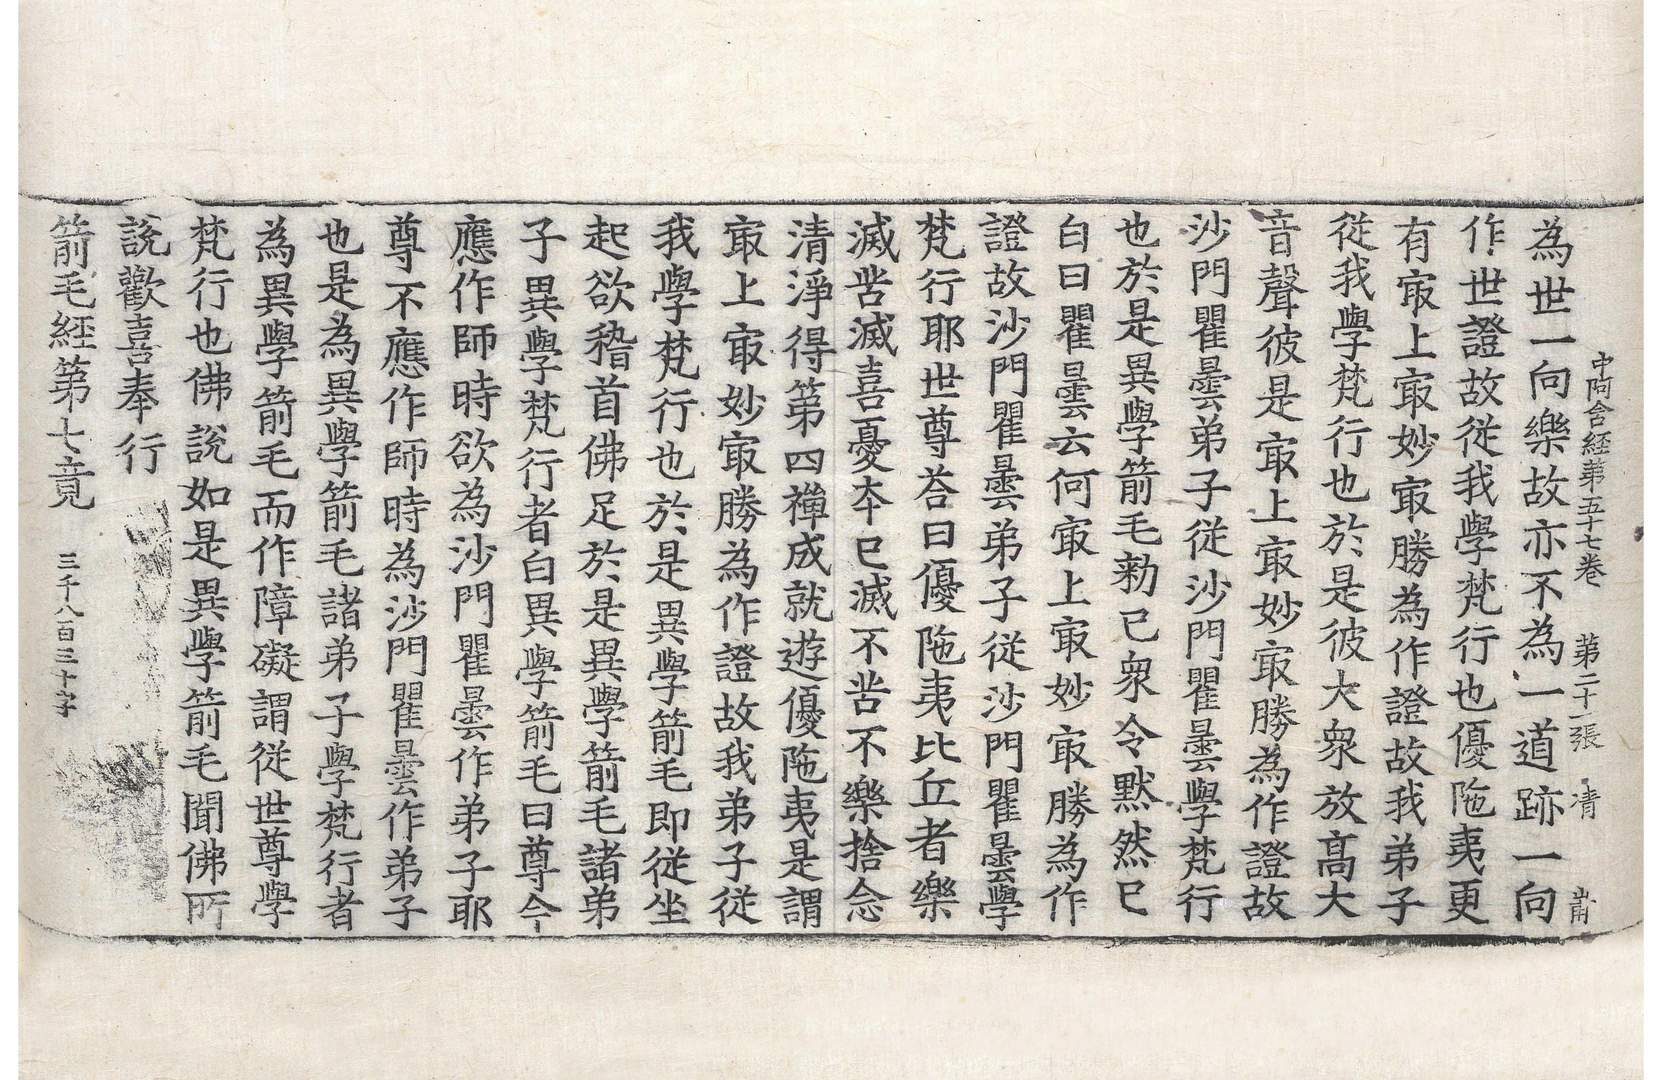 中阿含經第五十七卷 第二十一張 清
為世一向樂故亦不為一道跡一向
作世證故從我學梵行也優陁夷更
有㝡上㝡妙㝡勝為作證故我弟子
從我學梵行也於是彼大衆放高大
音聲彼是㝡上㝡妙㝡勝為作證故
沙門瞿曇弟子從沙門瞿曇學梵行
也於是異學箭毛勑已衆令默然已
白曰瞿曇云何㝡上㝡妙㝡勝為作
證故沙門瞿曇弟子從沙門瞿曇學
梵行耶世尊荅曰優陁夷比丘者樂
滅苦滅喜憂本已滅不苦不樂捨念
清淨得第四禪成就遊優陁夷是謂
㝡上㝡妙㝡勝為作證故我弟子從
我學梵行也於是異學箭毛即從坐
起欲稽首佛足於是異學箭毛諸弟
子異學梵行者白異學箭毛曰尊今
應作師時欲為沙門瞿曇作弟子耶
尊不應作師時為沙門瞿曇作弟子
也是為異學箭毛諸弟子學梵行者
為異學箭毛而作障礙謂從世尊學
梵行也佛說如是異學箭毛聞佛所
說歡喜奉行
箭毛經第七竟 三千八百三十字